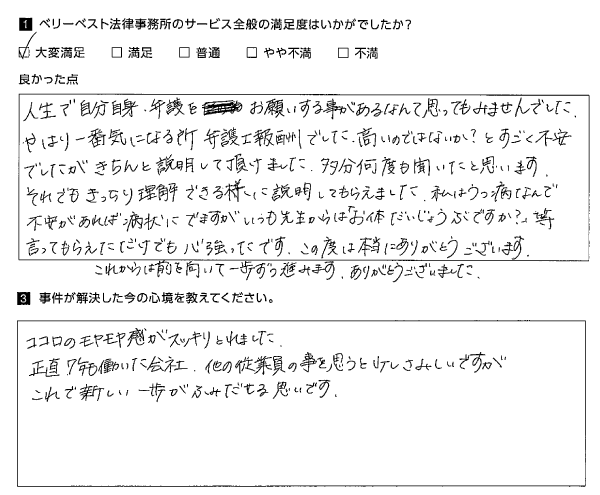 1 ベリーベスト法律事務所のサービス全般の満足度はいかがでしたか？
☑ 大変満足 □ 満足 □ 普通 □ やや不満 □ 不満
良かった点
人生で自分自身、弁護を お願いする事があるなんて思ってもみませんでした、
やはり一番気になる所 弁護士報酬でした、高いのではないか？とすごく不安
でしたがきちんと説明して頂けました、多分何度も聞いたと思います、
それでもきっちり理解できる様に説明してもらえました、私はうつ病なんで
不安があれば病状にでますがいつも先生からは「お体だいじょうぶですか？」等
言ってもらえただけでも心強ったです、この度は本当にありがとうございます、
これからは前を向いて一歩ずつ進みます、ありがとうございました、
3 事件が解決した今の心境を教えてください。
ココロのモヤモヤ感がスッキリとれました、
正直 7年も働いた会社、他の従業員の事を思うと少しさみしいですが
これで新しい一歩がふみだせる思いです、